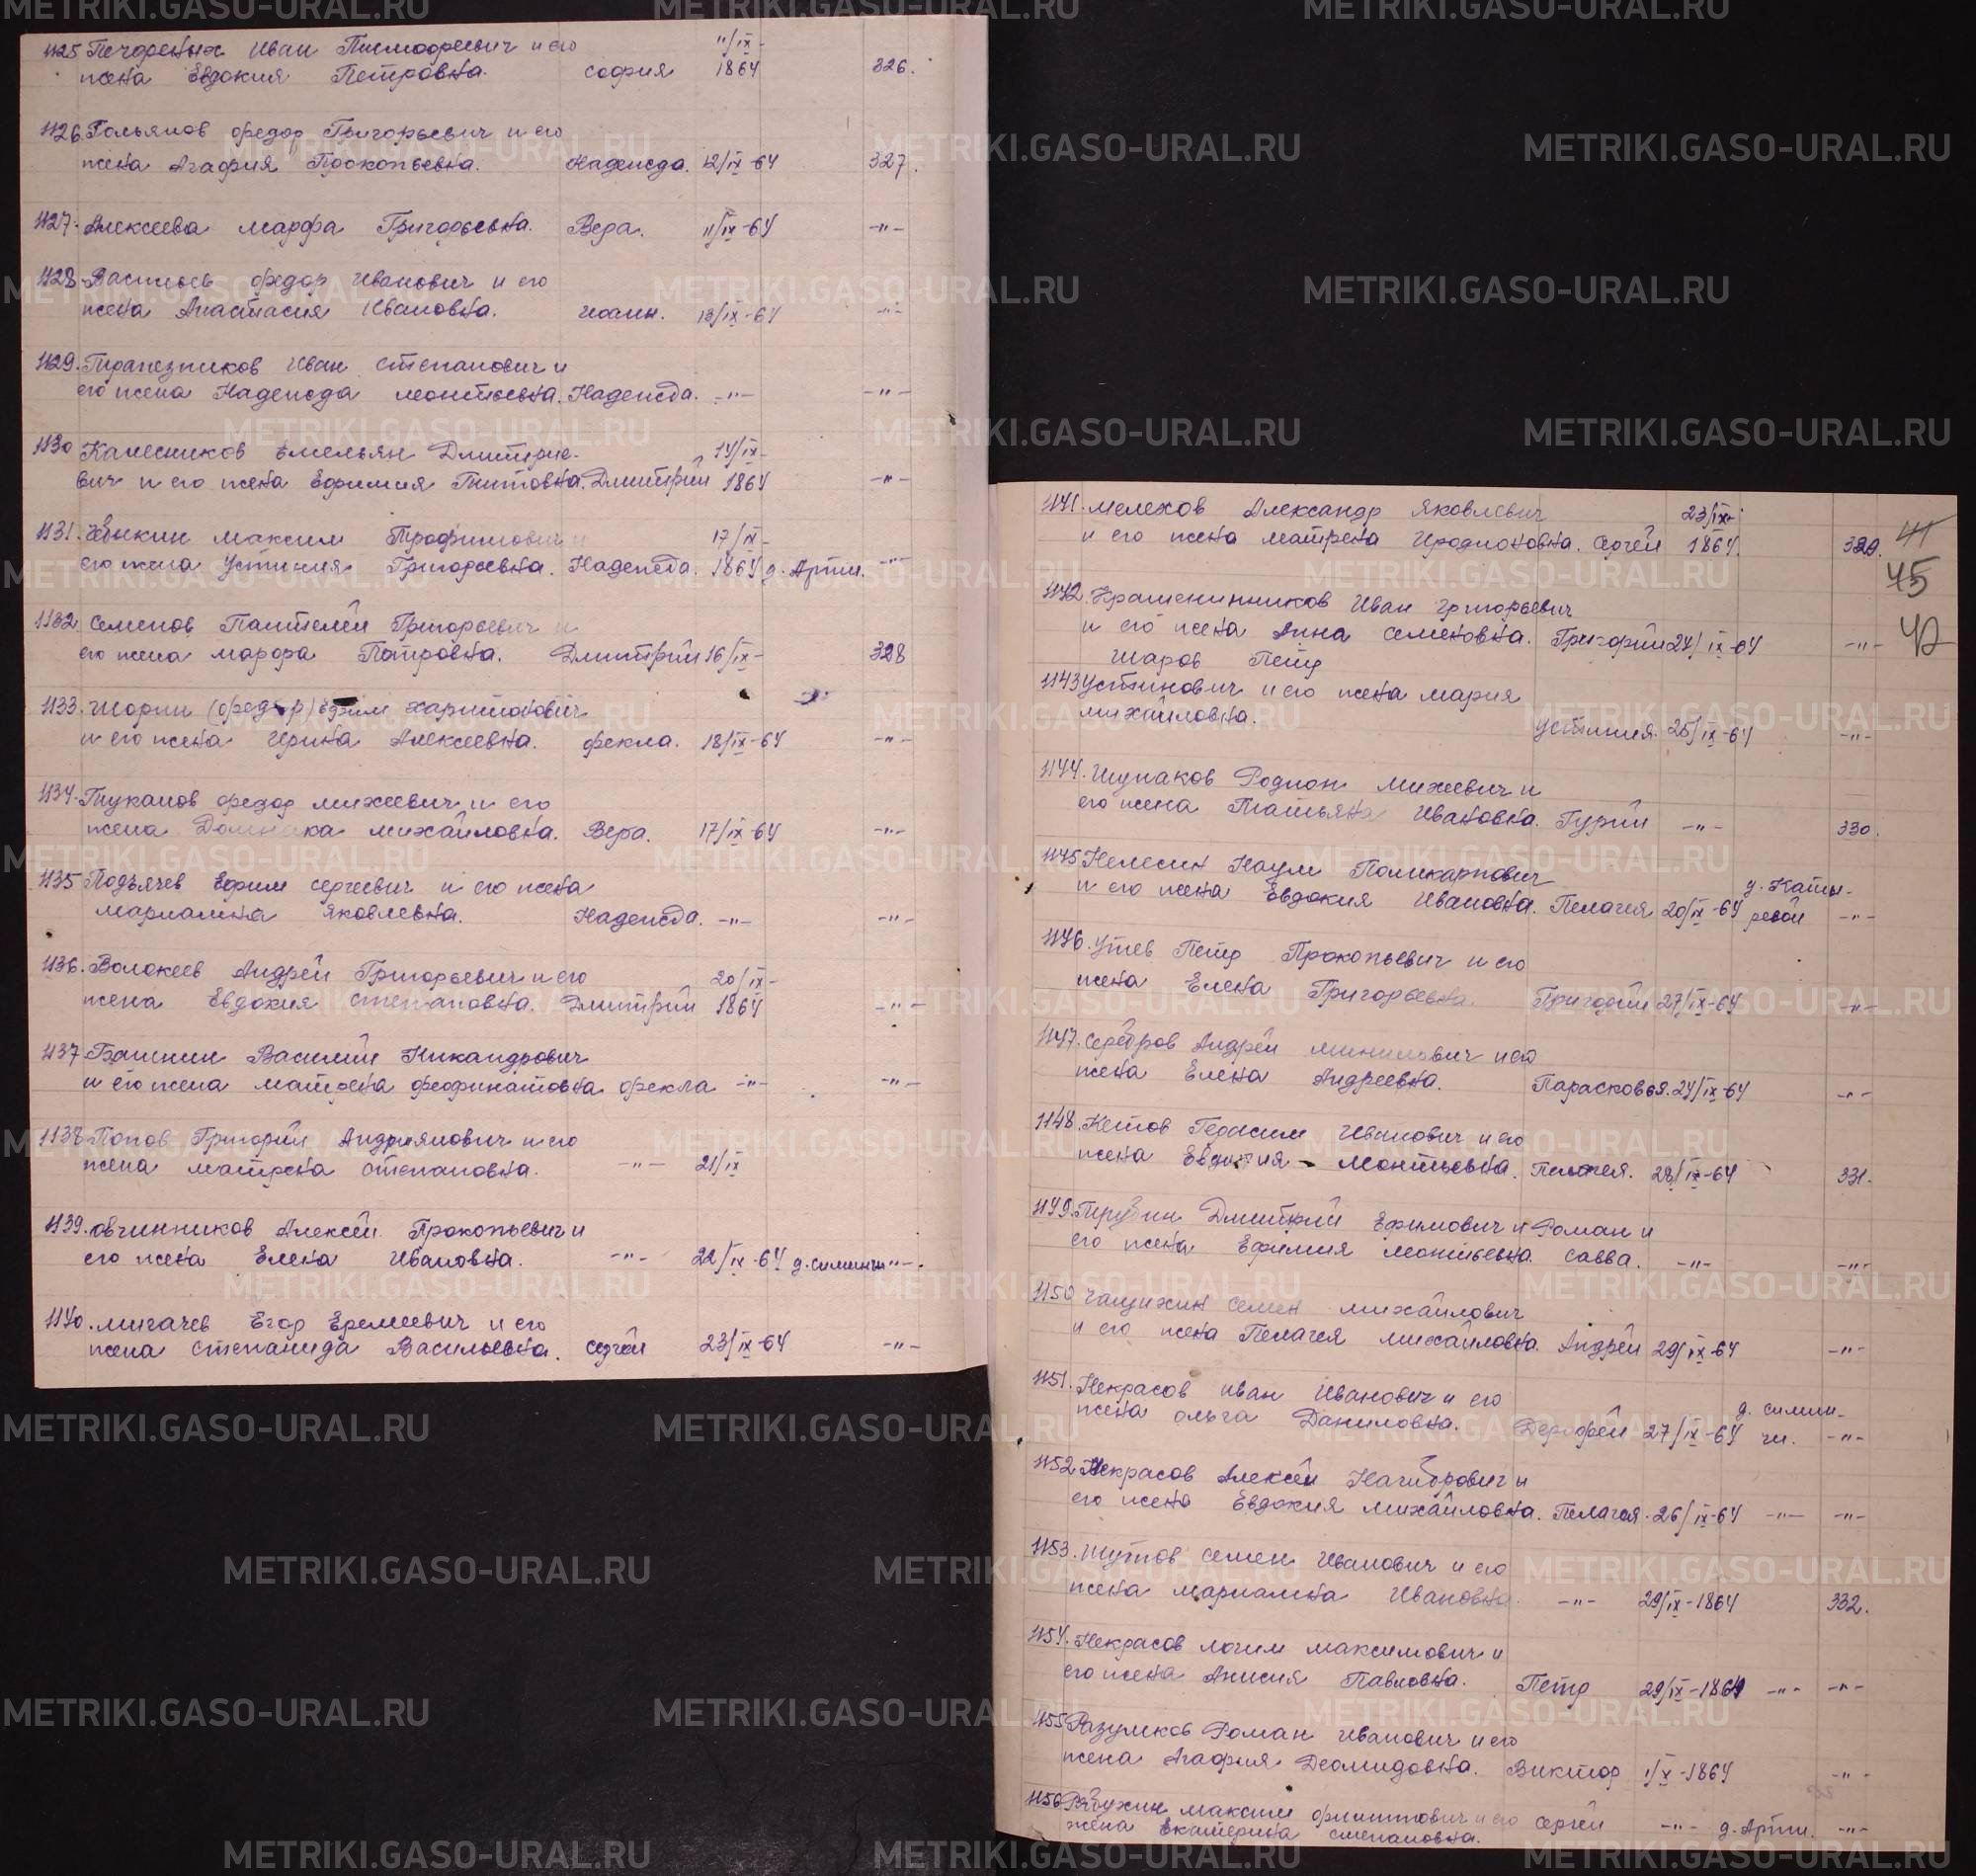 1125 Печореных Иван Тимофеевич и его 11/IX-
жена Евдокия Петровна. София 1864 326.
1126. Гольянов Федор Григорьевич и его
жена Агафия Прокопьевна. Надежда. 12/IX-64 327.
1127. Алексеева Марфа Григорьевна. Вера. 11/IX-64 -"-
1128. Федор Иванович и его
жена Анастасия Ивановна. Иоанн. 13/IX-64 -"-
1129. Трапезников Иван Степанович и
его жена Надежда Монтьевна. Надежда. -"- -"-
1130 Калесников Емельян Дмитрие- 14/IX-
вич и его жена Ефимия Титовна. Дмитрий 1864 -"-
1131. Максим Трофимович и 17/IX-
его жена Устиния Григорьевна. Надежда. 1864 д. Артм. -"-
1132 Семенов Пантелей Григорьевич и
его жена Марфа Петровна. Дмитрий 16/IX- 328
1133. Шорин (Федор) Ефим Харитонович
и его жена Ирина Алексеевна. Фекла. 18/IX-64 -"-
1134. Тиуканов Федор Михеевич и его
жена Домника Михайловна. Вера. 17/IX-64 -"-
1135 Подъячев Ефим Сергеевич и его жена
Мариамна Яковлевна. Надежда. -"- -"-
1136. Волокеев Андрей Григорьевич и его 20/IX-
жена Евдокия Степановна. Дмитрий 1864 -"-
1137. Василий Никандрович
и его жена Матрена Феофилатовна Фекла -"- -"-
1138. Попов Григорий Андриянович и его
жена Матрена Степановна. -"- 21/IX
1139. Овчинников Алексей Прокопьевич и
его жена Елена Ивановна. -"- 22/IX-64 д. Симинчи -"-
1140. Мигачев Егор Еремеевич и его
жена Степанида Васильевна. Сергей 23/IX-64 -"-
1141. Мелехов Александр Яковлевич 23/IX-
и его жена Матрена Иродионовна. Сергей 1864. 329. 41
45
1142. Крашенинников Иван Григорьевич
и его жена Анна Семеновна. Григорий 24/IX-64 -"- 42
Шаров Петр
1143 Устинович и его жена Мария
Михайловна.
Устиния. 25/IX-64 -"-
1144. Шупаков Родион Михеевич и
его жена Татьяна Ивановна. Гурий -"- 330.
1145 Наум Поликарпович д. Каты-
и его жена Евдокия Ивановна. Пелагея 20/IX-64 ревой -"-
1146. Утев Петр Прокопьевич и его
жена Елена Григорьевна. Григорий 27/IX-64 -"-
1147. Серебров Андрей и его
жена Елена Андреевна. Парасковья. 24/IX-64 -"-
1148. Кетов Герасим Иванович и его
жена Евдокия Монтьевна. Пелагея. 28/IX-64 331.
1149. Трубин Дмитрий Ефимович и Роман и
его жена Ефимия Монтьевна. Савва. -"- -"-
1150 Чащихин Семен Михайлович
и его жена Пелагея Михайловна. Андрей 29/IX-64 -"-
1151. Некрасов Иван Иванович и его д. Симин-
жена Ольга Даниловна. Дорофей 27/IX-64 чи. -"-
1152. Некрасов Алексей и
его жена Евдокия Михайловна. Пелагея. 26/IX-64 -"- -"-
1153. Шутов Семен Иванович и его
жена Мариамна Ивановна. -"- 29/IX-1864 332.
1154. Некрасов Логин Максимович и
его жена Анисия Павловна. Петр 29/IX-1864 -"- -"-
1155 Разумков Роман Иванович и его
жена Агафия Деомидовна. Виктор 1/X-1864 -"-
1156 Рябухин Максим Филиппович и его Сергей
жена Екатерина Степановна. -"- д. Артм. -"-
METRIKI.GASO-URAL.RU